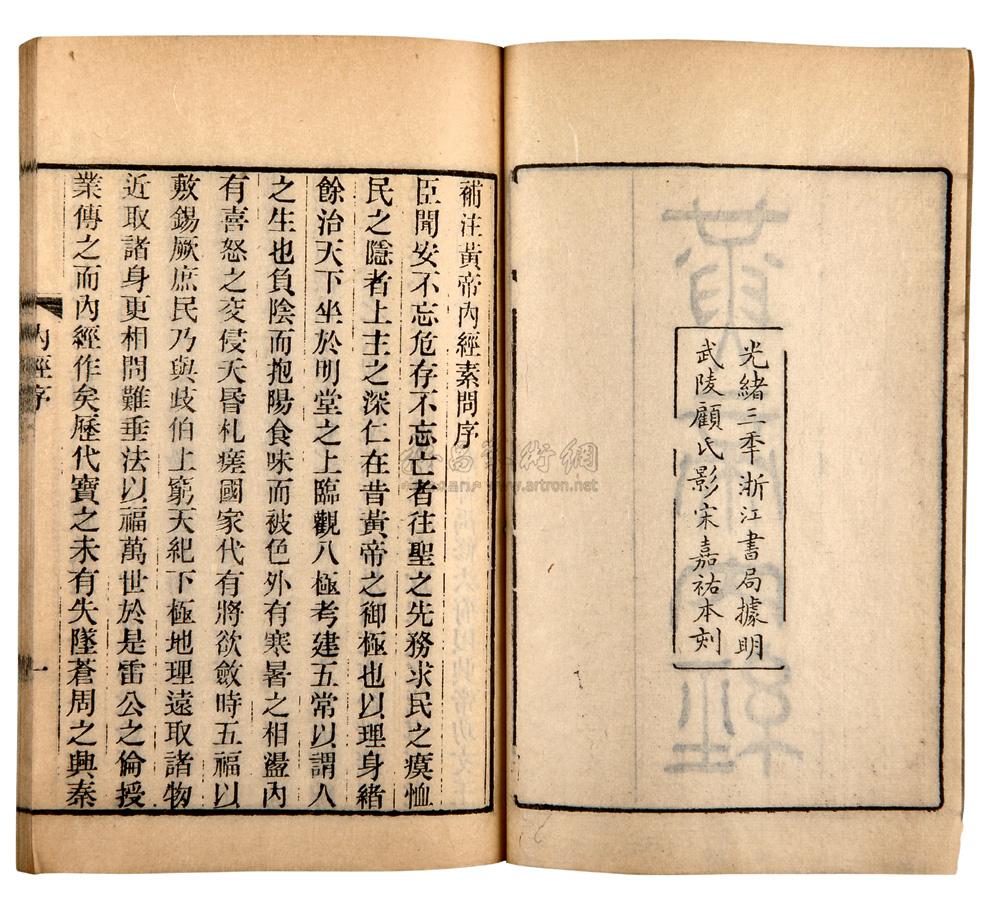 光緒三年浙江書局據明
武陵顧氏影宋嘉祐本刻
補注黃帝內經素問序
臣聞安不忘危存不忘亡者往聖之先務求民之瘼恤
民之隱者上主之深仁在昔黃帝之御極也以理身緒
餘治天下坐於明堂之上臨觀八極考建五常以謂人
之生也負陰而抱陽食味而被色外有寒暑之相盪內
有喜怒之交侵夭昬札瘥國家代有將欲斂時五福以
敷錫厥庶民乃與歧伯上窮天紀下極地理遠取諸物
近取諸身更相問難垂法以福萬世於是雷公之倫授
業傳之而內經作矣歷代寶之未有失墜蒼周之興秦
內經序
一
www.artron.net